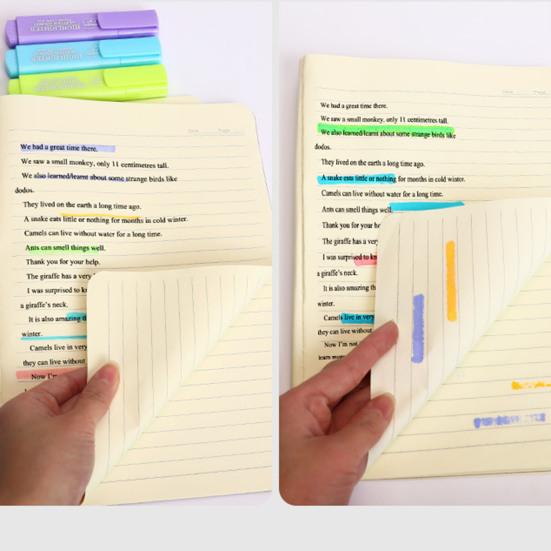 HIGHLIGHTER
HIGHLIGHTER
HIGHLIGHTER
We had a great time there.
We saw a small monkey, only 11 centimetres tall.
We also learned/learnt about some strange birds like
dodos.
They lived on the earth a long time ago.
A snake eats little or nothing for months in cold winter.
Camels can live without water for a long time.
Ants can smell things well.
Thank you for your help.
The giraffe has a very
I was surprised to k
a giraffe's neck.
It is also amazing th
winter.
Camels live in very
they can live without
Now I'm
We had a great time there.
We saw a small monkey, only 11 centimetres tall.
We also learned/learnt about some strange birds like
dodos.
They lived on the earth a long time ago.
A snake eats little or nothing for months in cold winter.
Camels can live without water for a long time.
Ants can smell things well.
Thank you for your he
The giraffe has a very
I was surprised to kn
a giraffe's neck.
It is also
winter.
Camels live in very
they can live without
Now I'm
learn more